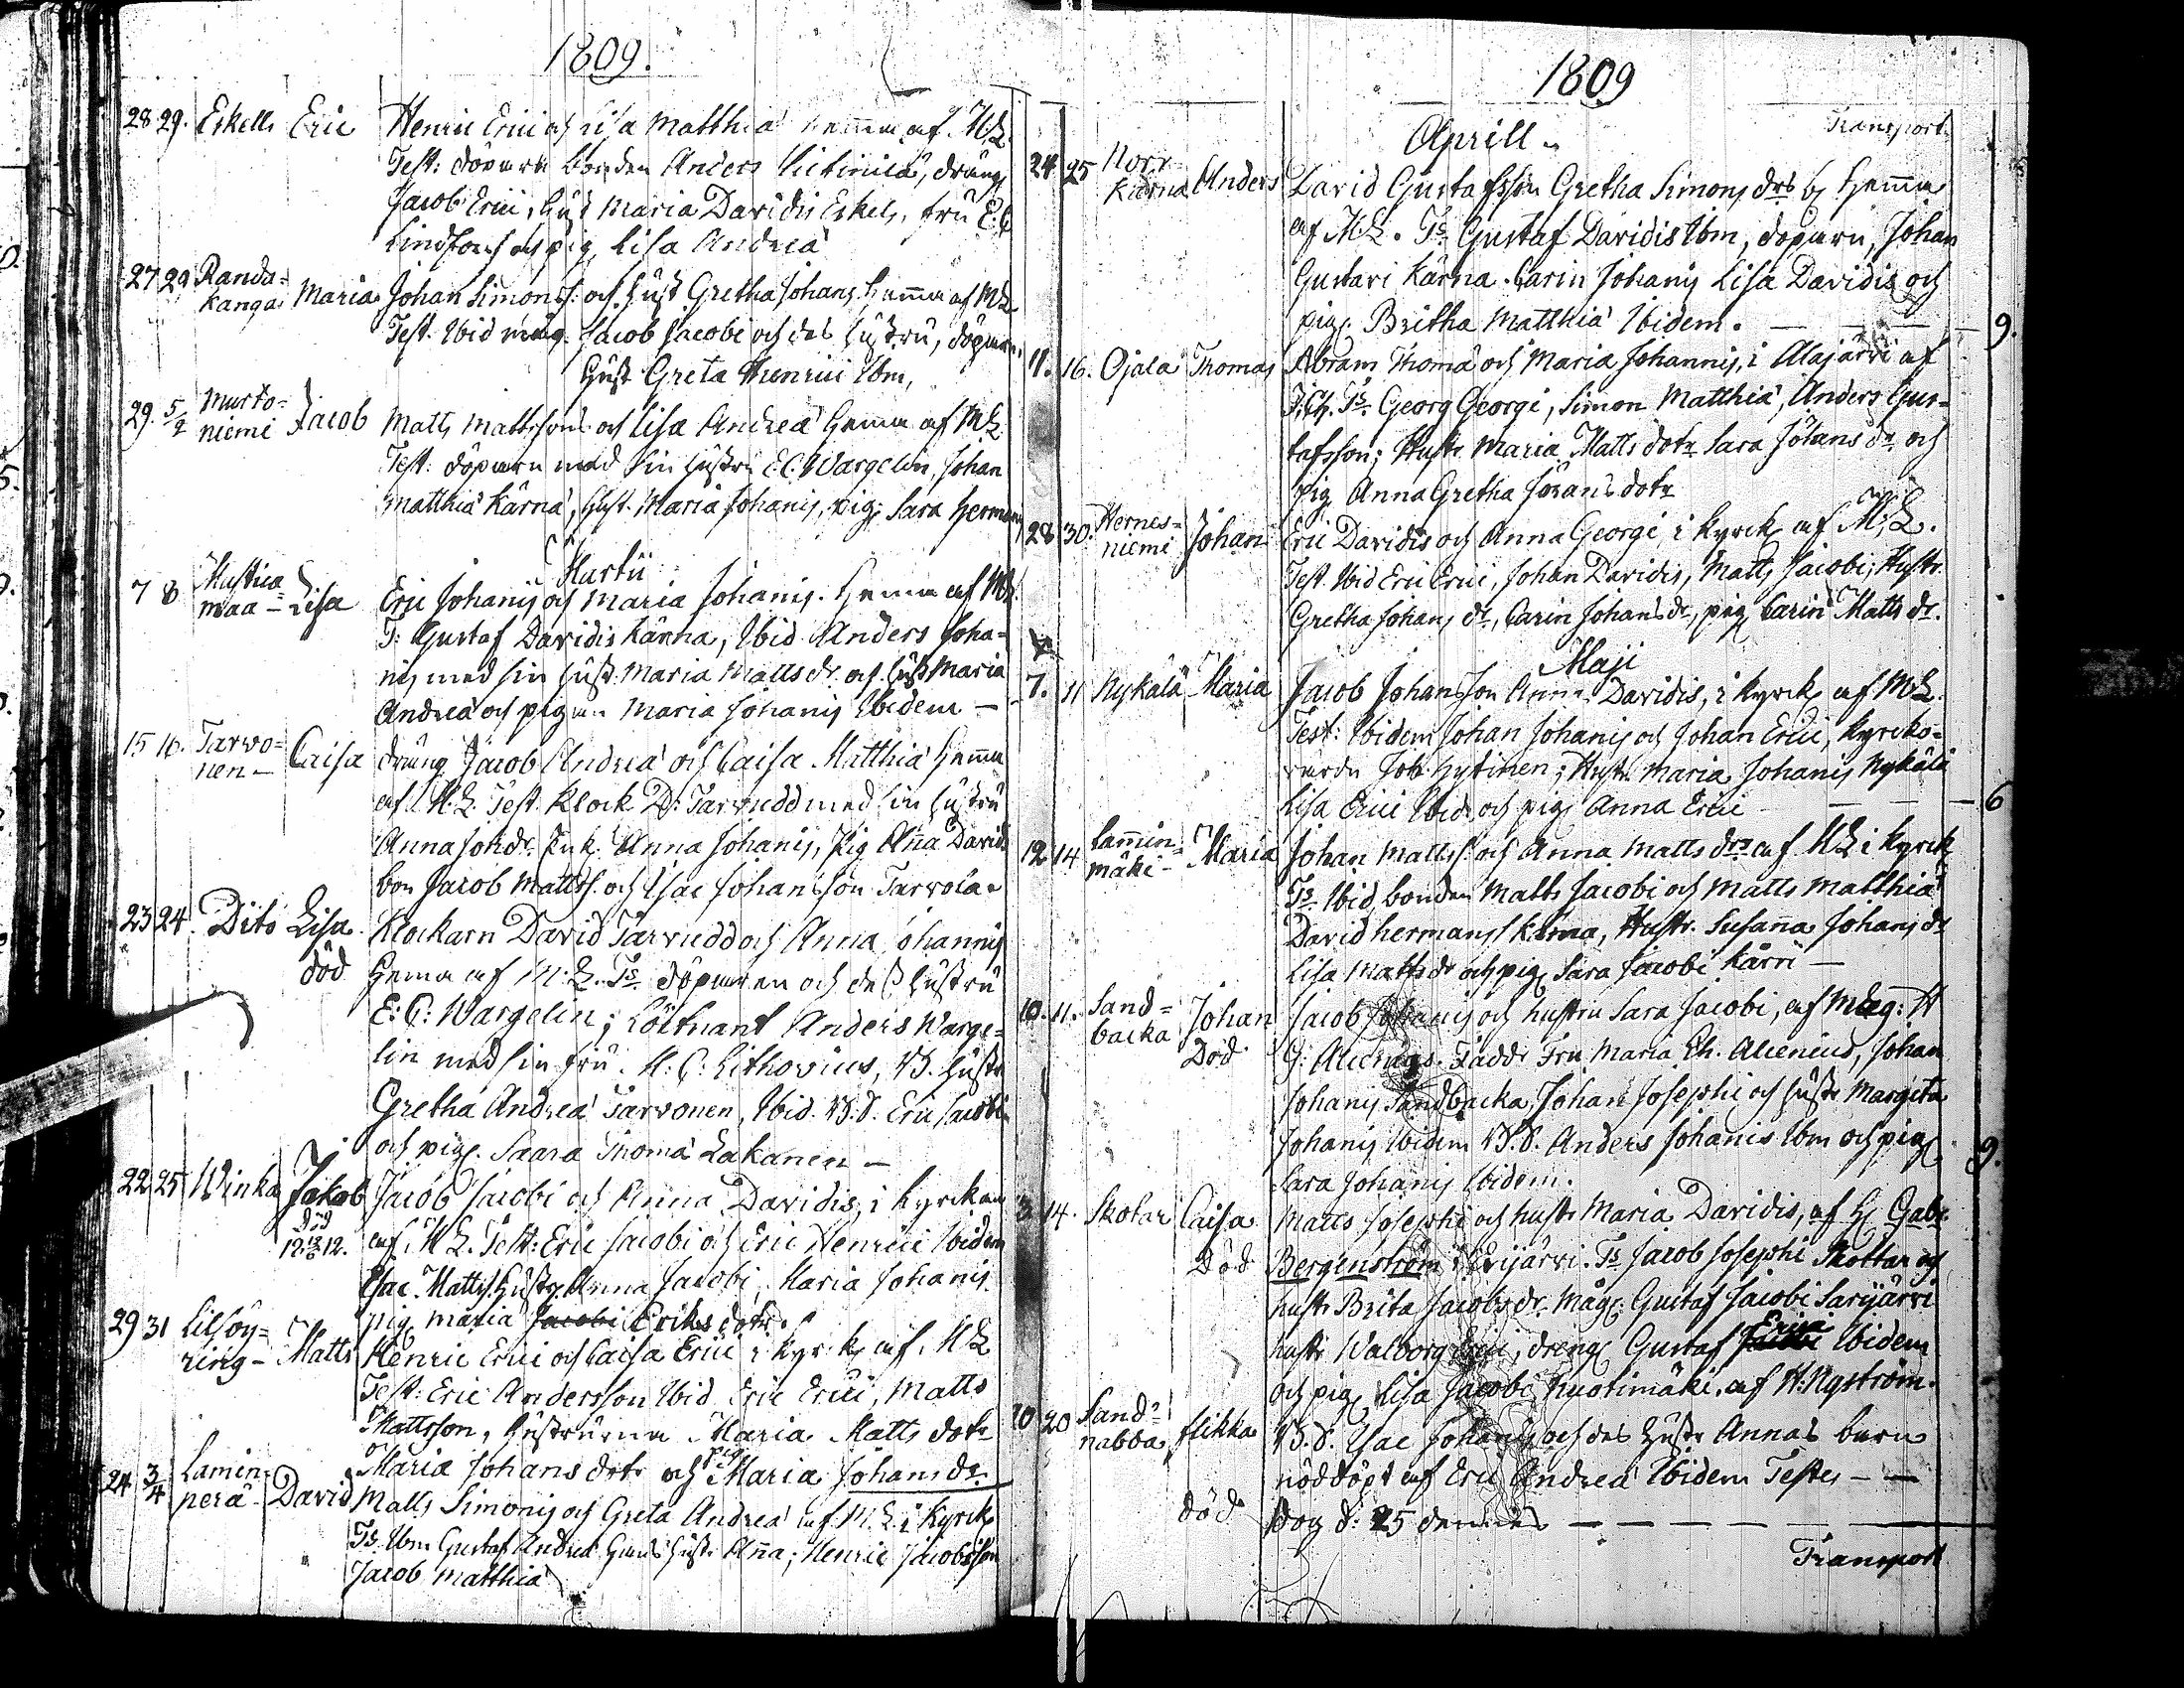 1809.
28 29. Eskells Eric Henric Erici och Lisa Matthiæ hemma af M.L.
Test: döparn bonden Anders dräng
Jacob Erici, Hust Maria Davidis Eskels, fru E:C
Lindfors och pig. Lisa Andreæ
27 29 Randa=
kangas Maria Johan Simonss. och Hust Gretha Johans. hemma af ML
Test. Ibid måg. Jacob Jacobi och des hustru, döparn
Hust Greta Henrici Ibm,
29. 5/2 Murto=
niemi Jacob Matts Mattssons och Lisa Andreæ hemma af ML
Test: döparn med sin hustru E.C. Wargelin, Johan
Matthiæ Kärnä, Hust. Maria Johanis, pig. Sara Hermans
Martii
7 8 Mustica=
maa - Lisa Eric Johanis och Maria Johanis. hemma af ML.
T: Gustaf Davidis Kärna, Ibid Anders Joha=
nis med sin hust. Maria Mattsdr. och hust Maria
Andreæ och pigan Maria Johanis Ibidem -
15 16. Tarvo=
nen - Caisa dräng Jacob Andreæ och Caisa Matthiæ hemma
af M.L. Test. Klock D: Tarvudd med sin hustru
Anna Johdr. Enk. Anna Johanis, Pig Anna Davids
bon Jacob Mattss. och Isac Johansson Tarvola
23 24. Dito Lisa Klockarn David Tarvudd och Anna Johannis
död hema af M.L. Ts. döparen och dess hustru
E:C: Wargelin; Löitnant Anders Warge=
lin med sin fru M:C: Lithovius, B. hustr
Gretha Andreæ Tarvonen, Ibid. B.S. Eric Jacobi
och pig. Saara Thomæ Lakanen -
22 25 Winka Jakob Jacob Jacobi och Anna Davidis, i kyrckan
död
12 12/6 12. af M.L. Test: Eric Jacobi och Eric Henrici Ibidem
Isac Mattss. hustr. Anna Jacobi, Maria Johanis
pig Maria Jacobi Eriks dotr.
29 31 Lillöy=
ring - Matts Henric Erici och Caisa Erici i kyrck af ML
Test: Eric Andersson Ibid Eric Erici, Matts
Mattsson, hustrurna Maria Matts dotr
Maria Johans dotr och pig Maria Johansdr.
24 3/4 Lamin
perä - David Matts Simonis och Greta Andreæ af M.L. i kyrck
Ts. Ibm Gustaf Andreæ hustr Anna; Henric Jacobsson
Jacob Matthiæ
1809
Aprill - Transport
24 25 Norr
Kiärna Anders David Gustafsson Gretha Simons drs b. hemma
af M.L. Ts. Gustaf Davidis Ibm, döparn, Johan
Gustavi Kärna. Carin Johanis Lisa Davidis och
pig. Britha Matthiæ Ibidem. - - - 9.
11. 16. Ojala Thomas Abram Thomæ och Maria Johannis, i Alajärvi af
Ts. Georg Georgi, Simon Matthiæ, Anders Gus=
tafsson; Hustr Maria Matts dotr Sara Johans dr och
pig Anna Gretha Jörans dotr
28 30. Hernes=
niemi Johan Eric Davidis och Anna Georgi, i kyrck af M.L.
Test. Ibid Eric Erici, Johan Davidis, Matts Jacobi; Hustr
Gretha Johans dr, Carin Johans dr, pig Carin Matts dr.
Maji
7. 11 Nykälä Maria Jacob Johansson Anna Davidis, i kyrck af M.L.
Test: Ibidem Johan Johanis och Johan Erici, kyrcko=
värdn Joh. Hytinen; Hustr Maria Johanis Nykälä
Lisa Erici Ibid och pig Anna Erici - - - 6
12 14 Lamin=
mäki - Maria Johan Mattss. och Anna Matts drs af ML i kyrck
Ts. Ibid bonden Matts Jacobi och Matts Matthiæ
David Hermans Kärna, Hustr. Susanna Johans dr
Lisa Matts dr och pig Sara Jacobi Kärri -
10. 11. Sand=
backa Johan Jacob Johanis och hustru Sara Jacobi, af Mag: H
Död G: Alcenius. Faddr Fru Maria El. Alcenius, Johan
Johanis Sandbacka, Johan Josephi och hustr Margeta
Johanis Ibidem B.S. Anders Johanis Ibm och pig 9.
Sara Johanis Ibidem.
14. Skotar Caisa Matts Josephi och hustr Maria Davidis, af H. Gabr.
Död Bergenström i Evijärvi. Ts Jacob Josephi Skottar och
hustr Brita Jacobs dr. Måg. Gustaf Jacobi Särijärvi
hustr Walborg Erici, dreng Gustaf Erici Ibidem
och pig Lisa Jacobi Huotimäki. af H: Nyström.
20 20 Sand=
nabba, flikka B.S. Isac Johanis och des hustr Annas barn
nöddöpt af Eric Andreæ Ibidem Testes - -
död Dog d: 25 dennes - - - -
Transport